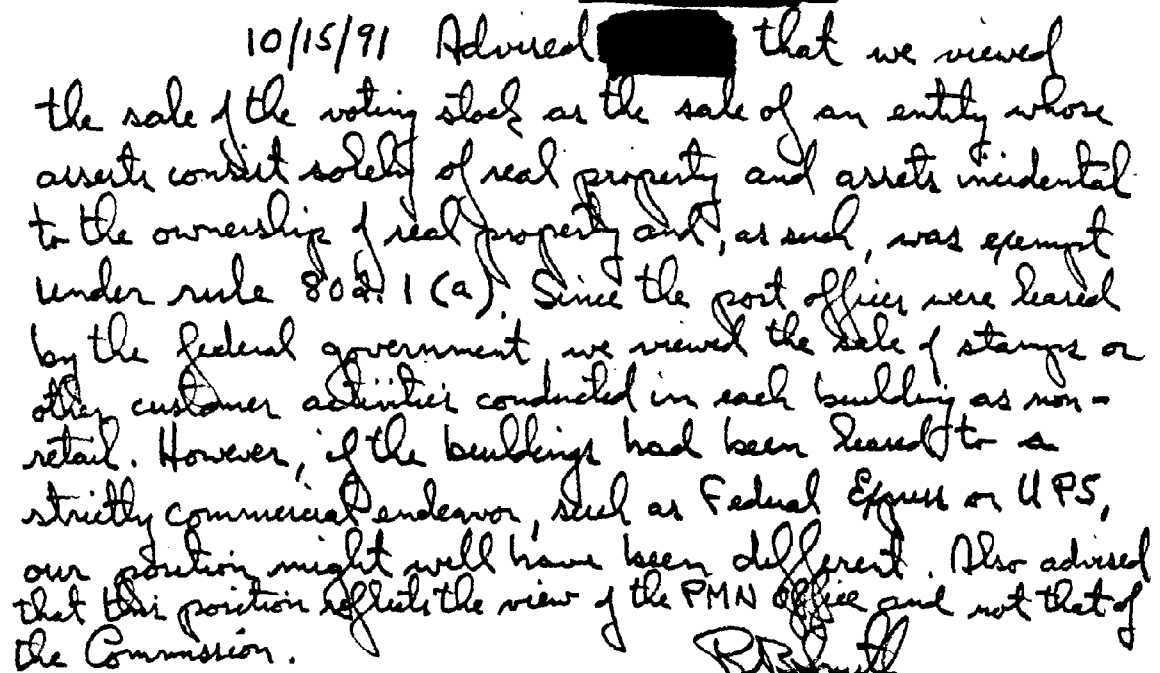 10/15/91 Advised that we viewed
the sale of the voting stock as the sale of an entity whose
assets consist solely of real property and assets incidental
to the ownership of real property and, as such, was exempt
under rule 802.1(a). Since the post offices were leased
by the federal government, we viewed the sale of stamps or
other customer activities conducted in each building as non-
retail. However, if the buildings had been leased to a
strictly commercial endeavor, such as Federal Express or UPS,
our position might well have been different. Also advised
that this position reflects the view of the PMN Office and not that of
the Commission.